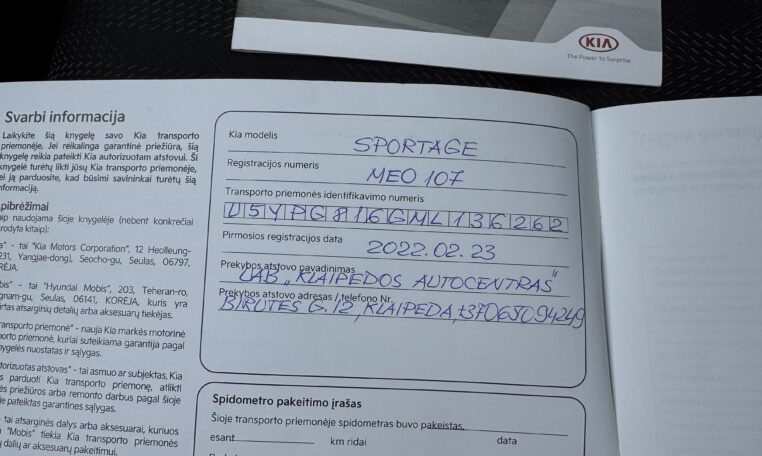 KIA
The Power to Surprise
Svarbi informacija
Laikykite šią knygelę savo Kia transporto
priemonėje. Jei reikalinga garantinė priežiūra, šią
knygelę reikia pateikti Kia autorizuotam atstovui. Ši
knygelė turėtų likti jūsų Kia transporto priemonėje,
ei ją parduosite, kad būsimi savininkai turėtų šią
nformaciją.
pibrėžimai
aip naudojama šioje knygelėje (nebent konkrečiai
rodyta kitaip):
a" - tai "Kia Motors Corporation", 12 Heolleung-
231, Yangjae-dong), Seocho-gu, Seulas, 06797,
RĖJA.
bis" - tai "Hyundai Mobis", 203, Teheran-ro,
gnam-gu, Seulas, 06141, KORĖJA, kuris yra
irtas atsarginių detalių arba aksesuarų tiekėjas.
ransporto priemonė" - nauja Kia markės motorinė
porto priemonė, kuriai suteikiama garantija pagal
nygelės nuostatas ir sąlygas.
torizuotas atstovas" - tai asmuo ar subjektas, Kia
s parduoti Kia transporto priemonę, atlikti
ės priežiūros arba remonto darbus pagal šioje
e pateiktas garantines sąlygas.
tai atsarginės dalys arba aksesuarai, kuriuos
a "Mobis" tiekia Kia transporto priemonės
ų dalių ar aksesuarų pakeitimui.
Kia modelis
SPORTAGE
Registracijos numeris
MEO 107
Transporto priemonės identifikavimo numeris
U5YPG816GML136262
Pirmosios registracijos data
2022.02.23
Prekybos atstovo pavadinimas
UAB „KLAIPĖDOS AUTOCENTRAS"
Prekybos atstovo adresas / telefono Nr.
BIRUTĖS G. 12, KLAIPĖDA, +37065094249
Spidometro pakeitimo įrašas
Šioje transporto priemonėje spidometras buvo pakeistas,
esant km ridai data